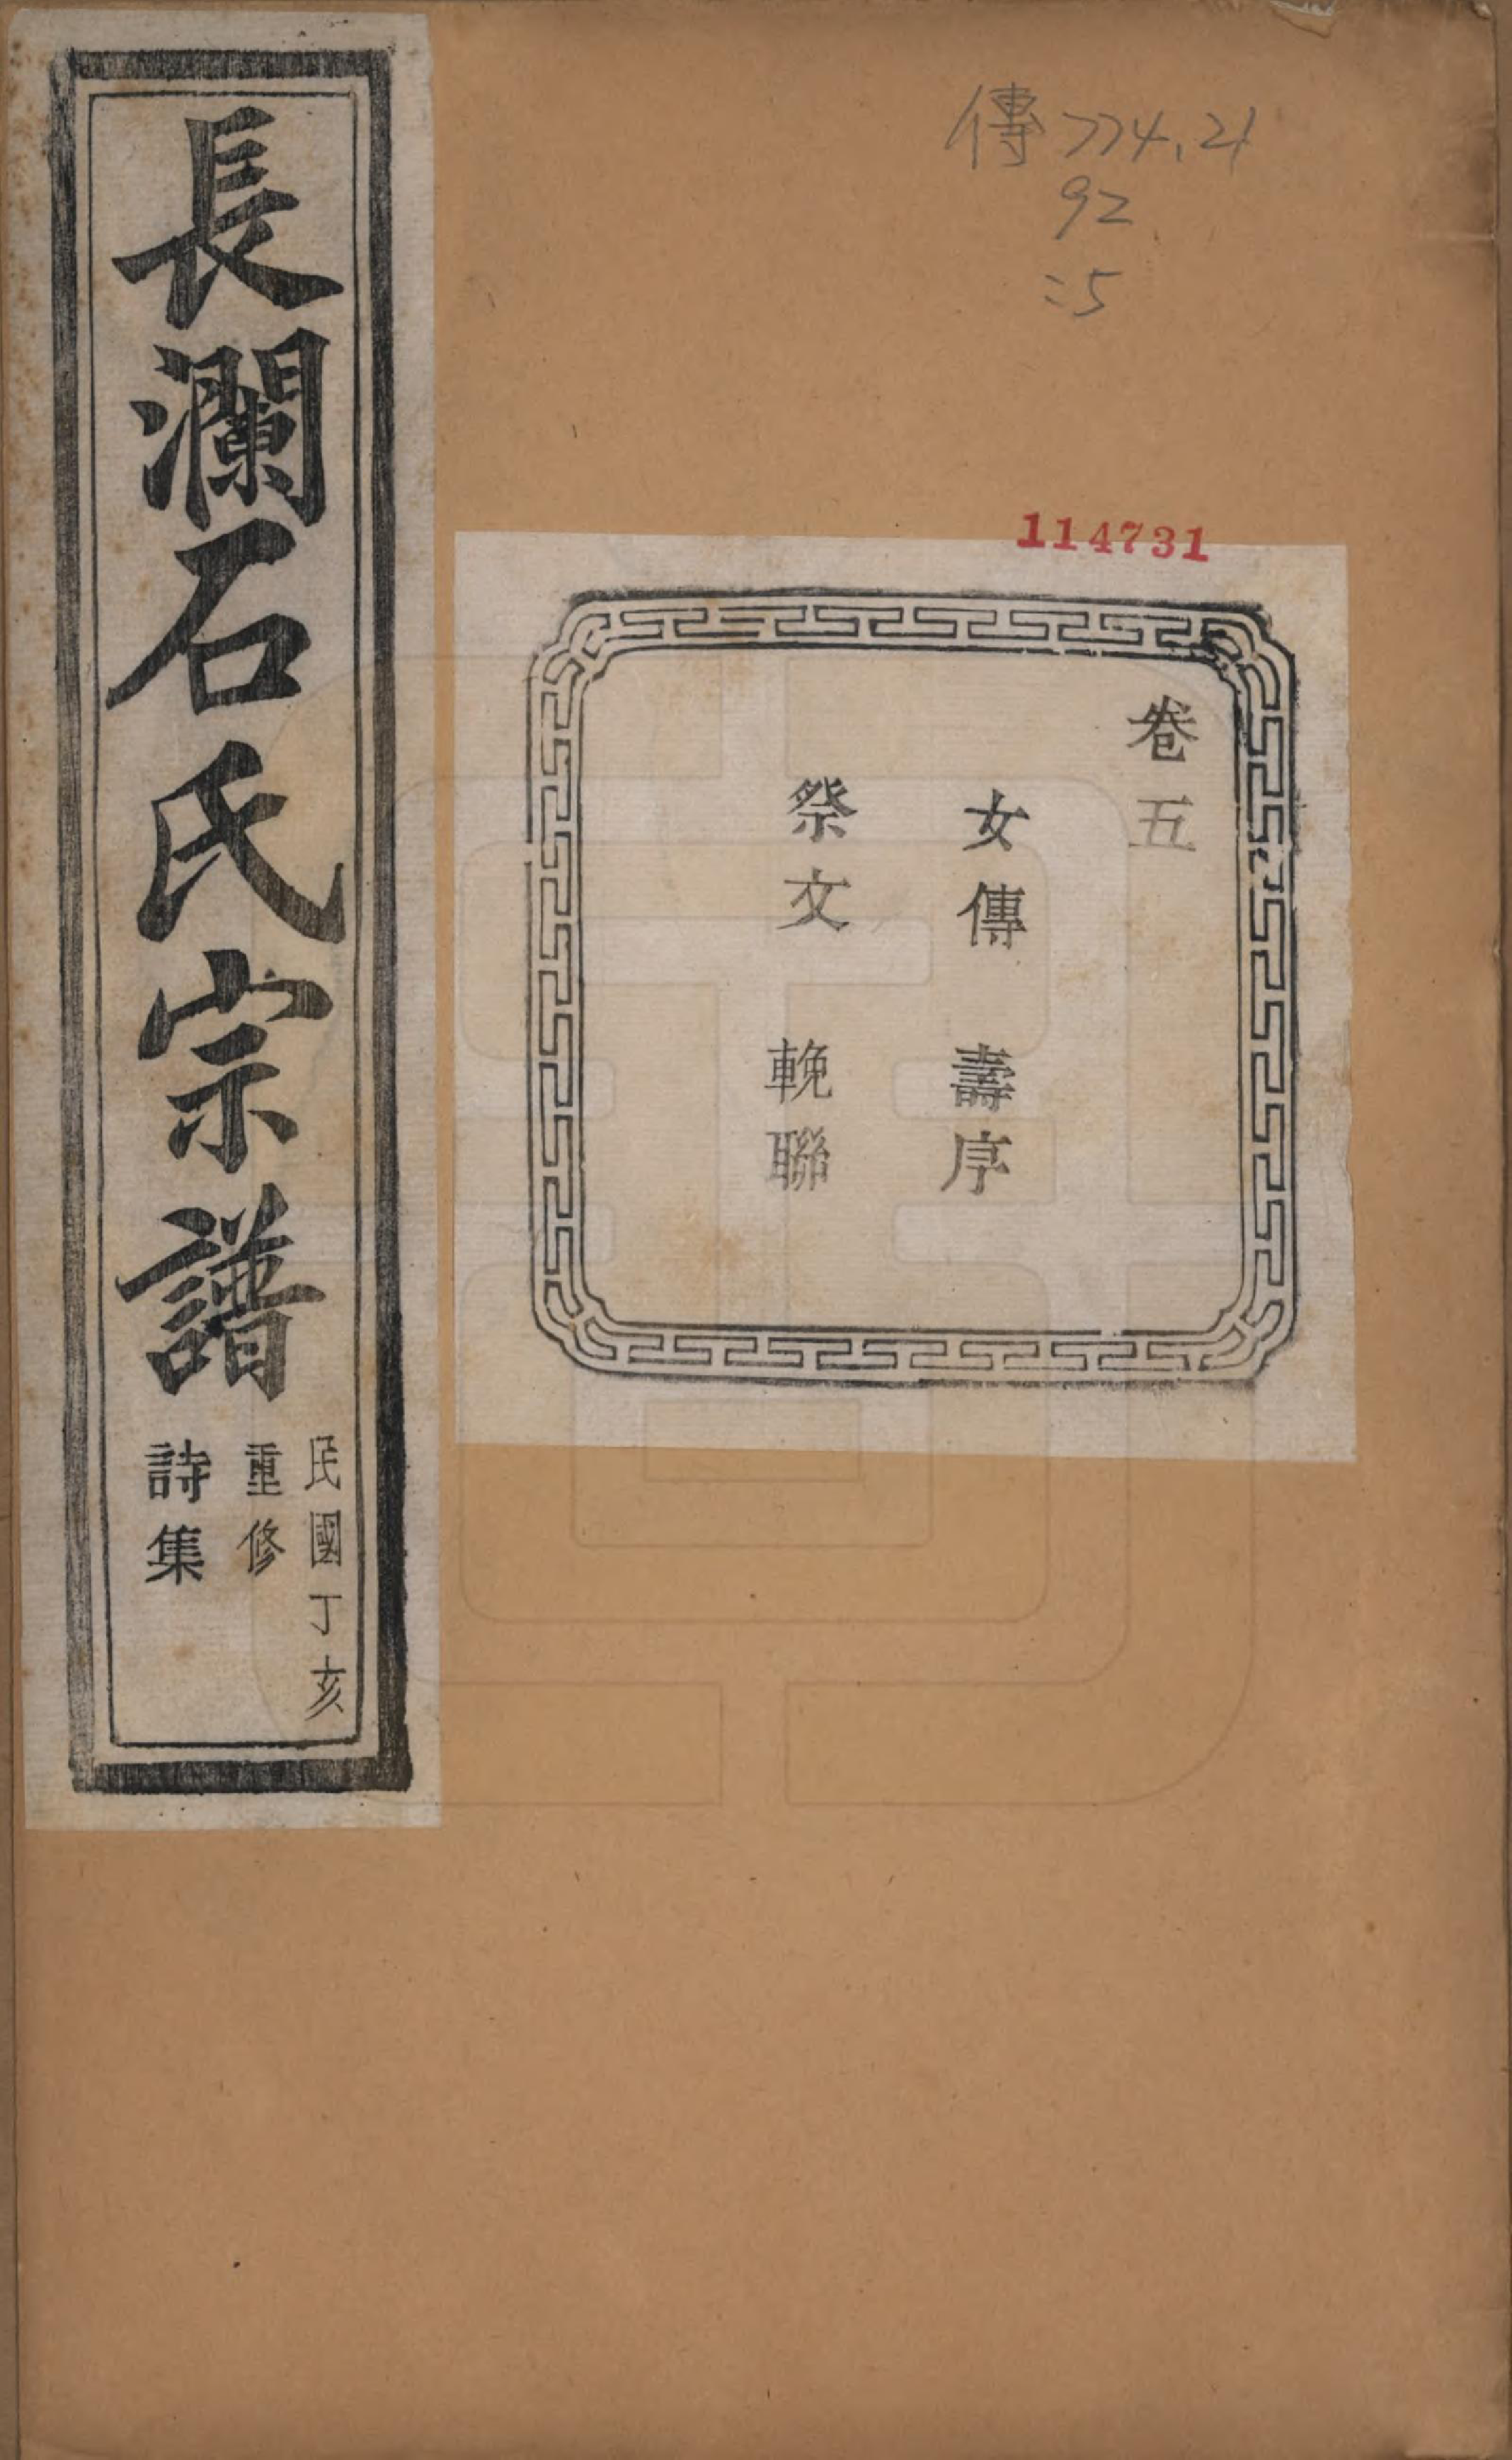 傳774.21
92
:5
114731
卷五
女傳 壽序
祭文 輓聯
長瀾石氏宗譜
民國丁亥
重修
詩集